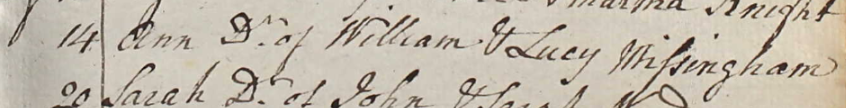 Knight
14 Ann Dr. of William & Lucy Missingham
20 Sarah Dr. of John & Sarah